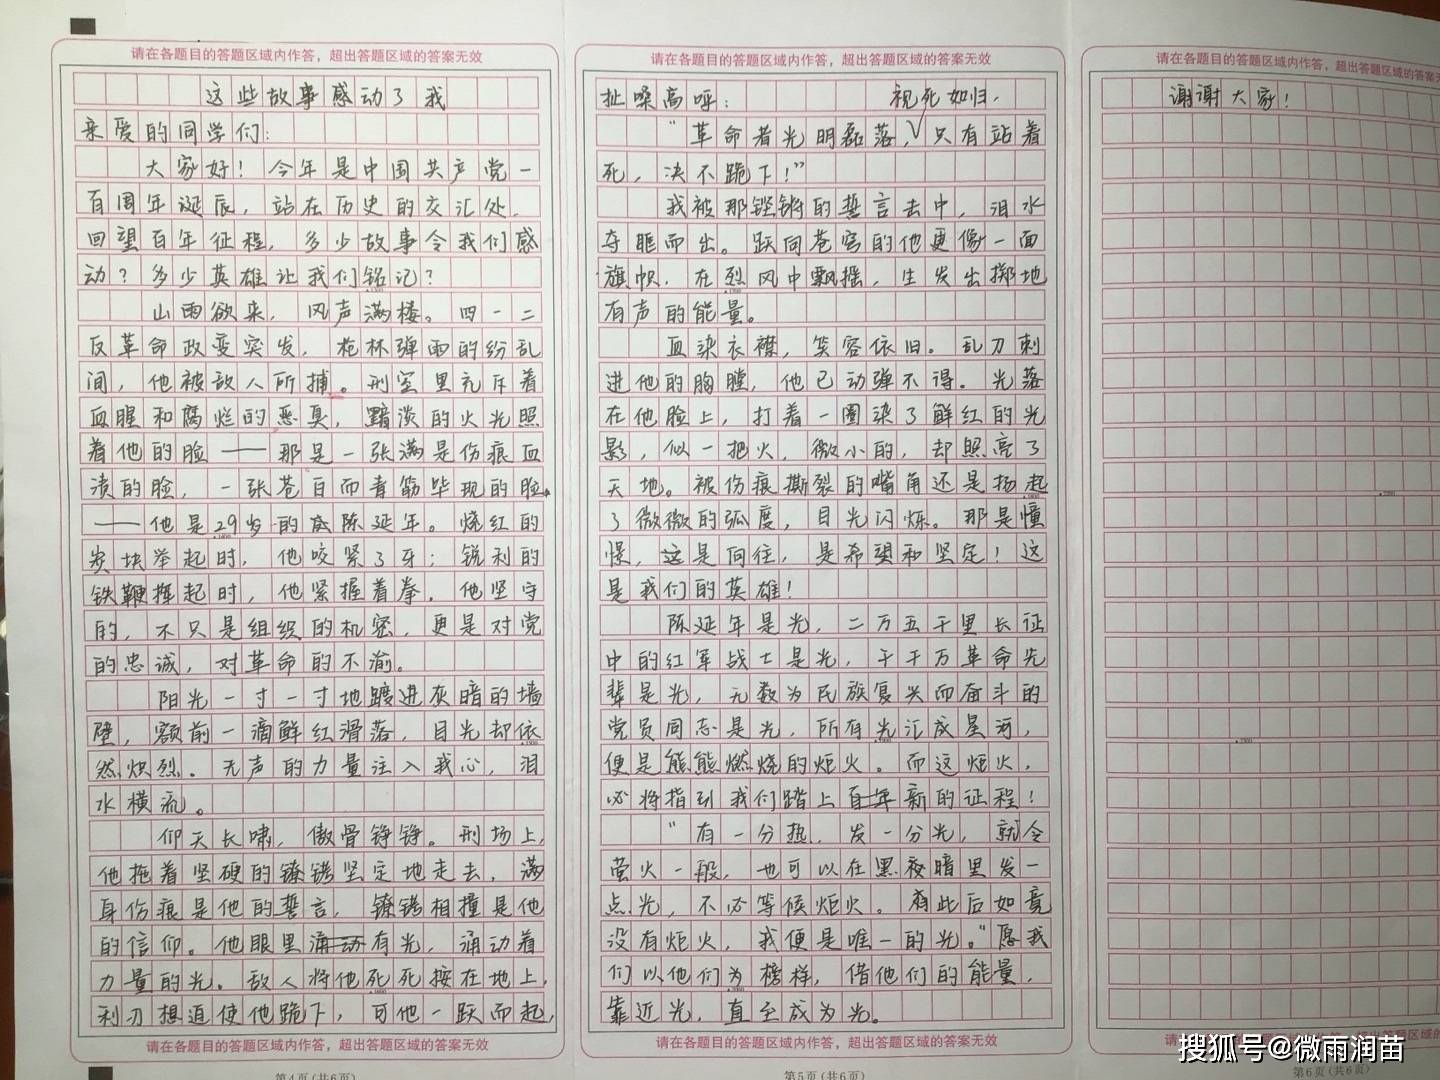 请在各题目的答题区域内作答，超出答题区域的答案无效
这些故事感动了我
亲爱的同学们：
大家好！今年是中国共产党一
百周年诞辰，站在历史的交汇处，
回望百年征程，多少故事令我们感
动？多少英雄让我们铭记？
山雨欲来，风声满楼。四一二
反革命政变突发，枪林弹雨的纷乱
间，他被敌人所捕。刑室里充斥着
血腥和腐烂的恶臭，黯淡的火光照
着他的脸——那是一张满是伤痕血
渍的脸，一张苍白而青筋毕现的脸。
——他是29岁的陈延年。烧红的
炭块举起时，他咬紧了牙；锐利的
铁鞭挥起时，他紧握着拳。他坚守
的，不只是组织的机密，更是对党
的忠诚，对革命的不渝。
阳光一寸一寸地踱进灰暗的墙
壁，额前一滴鲜红滑落，目光却依
然炽烈。无声的力量注入我心，泪
水横流。
仰天长啸，傲骨铮铮。刑场上，
他拖着坚硬的镣铐坚定地走去，满
身伤痕是他的誓言，镣铐相撞是他
的信仰。他眼里涌动有光，涌动着
力量的光。敌人将他死死按在地上，
利刃想迫使他跪下，可他一跃而起，
请在各题目的答题区域内作答，超出答题区域的答案无效
第4页(共6页)
请在各题目的答题区域内作答，超出答题区域的答案无效
扯嗓高呼：
视死如归，
“革命者光明磊落，只有站着
死，决不跪下！”
我被那铿锵的誓言击中，泪水
夺眶而出。跃向苍穹的他更像一面
旗帜，在烈风中飘摇，生发出掷地
有声的能量。
血染衣襟，笑容依旧。乱刀刺
进他的胸膛，他已动弹不得。光落
在他脸上，打着一圈染了鲜红的光
影，似一把火，微小的，却照亮了
天地。被伤痕撕裂的嘴角还是扬起
了微微的弧度，目光闪烁。那是憧
憬，这是向往，是希望和坚定！这
是我们的英雄！
陈延年是光，二万五千里长征
中的红军战士是光，千千万革命先
辈是光，无数为民族复兴而奋斗的
党员同志是光，所有光汇成星河，
便是熊熊燃烧的炬火。而这炬火，
必将指引我们踏上百年新的征程！
“有一分热，发一分光，就令
萤火一般，也可以在黑夜暗里发一
点光，不必等候炬火。此后如竟
没有炬火，我便是唯一的光。”愿我
们以他们为榜样，借他们的能量，
靠近光，直至成为光。
请在各题目的答题区域内作答，超出答题区域的答案无效
第5页(共6页)
请在各题目的答题区域内作答，超出答题区域的答案无效
谢谢大家！
请在各题目的答题区域内作答，超出答题区域的答案无效
第6页(共6页)
搜狐号@微雨润苗